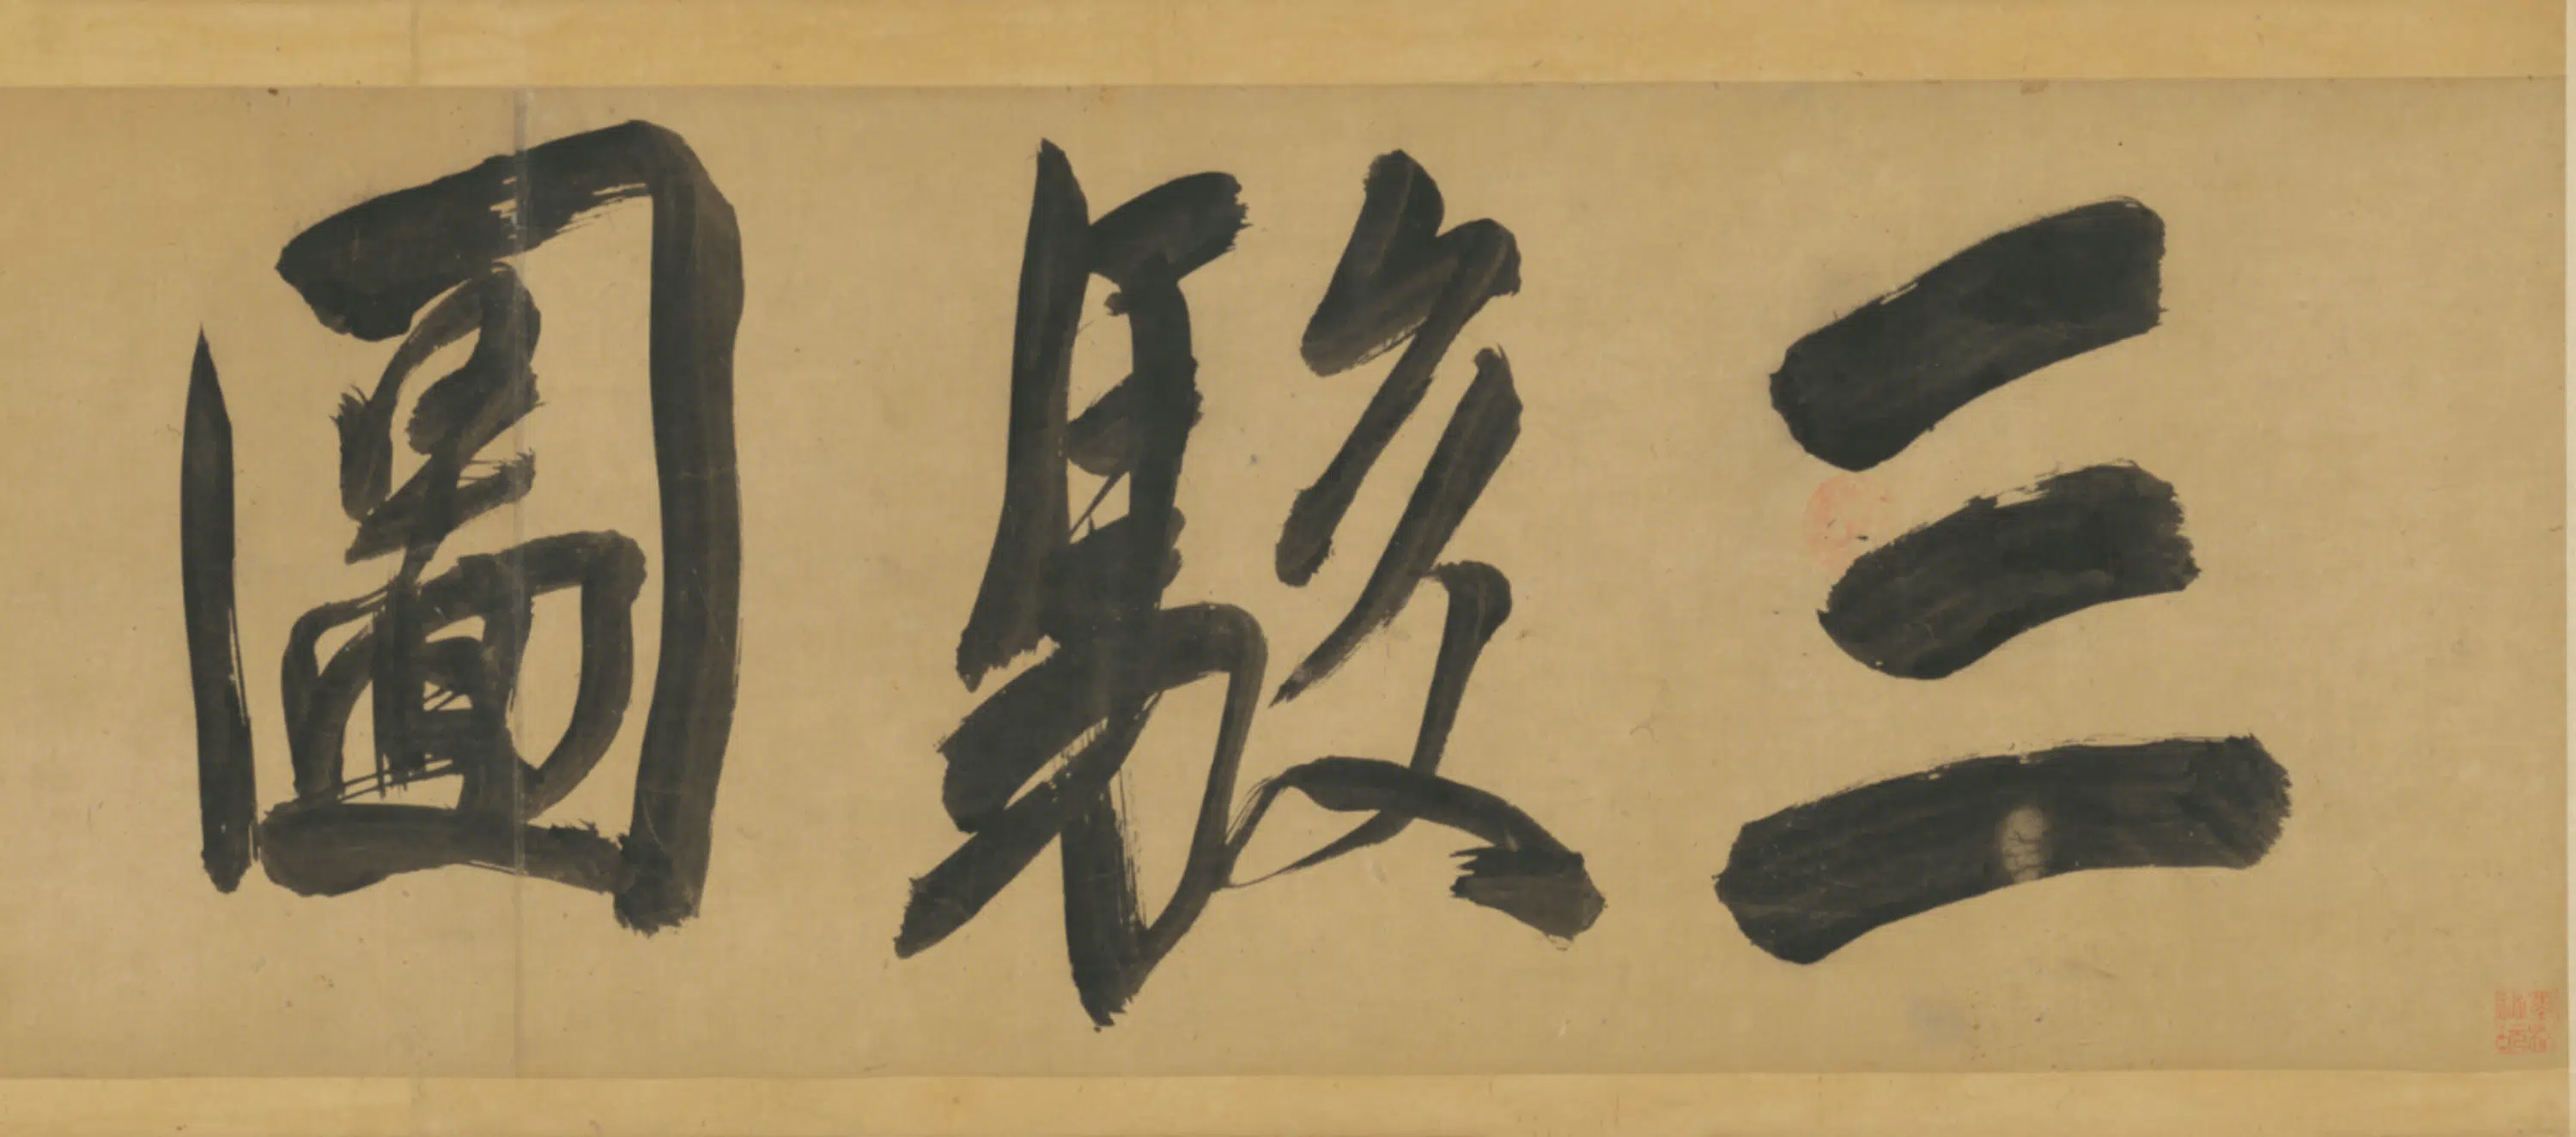 三駿圖